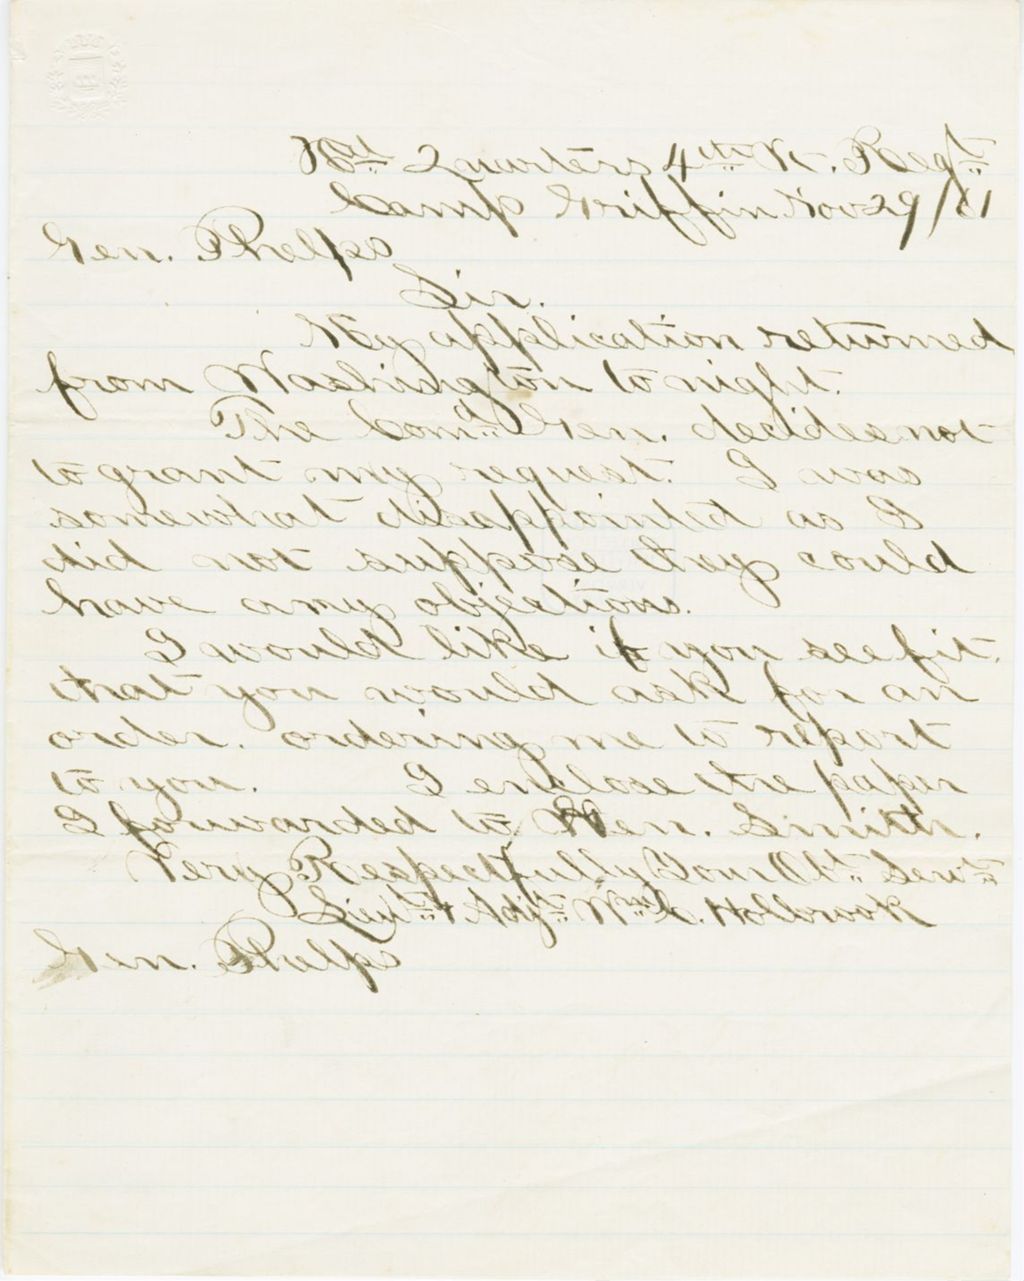 Hd Quarters 4th Vt. Regt
Camp Griffin Nov 29/61
Gen. Phelps
Sir.
My application returned
from Washington to night.
The Comdg Gen. decides not
to grant my request. I was
somewhat disappointed as I
did not suppose they could
have any objections.
I would like if you see fit
that you would ask for an
order. ordering me to report
to you. I enclose the paper
I forwarded to Gen. Smith.
Very Respectfully Your Obt Servt
Lieut & Adjt Wm C. Holbrook
Gen. Phelps